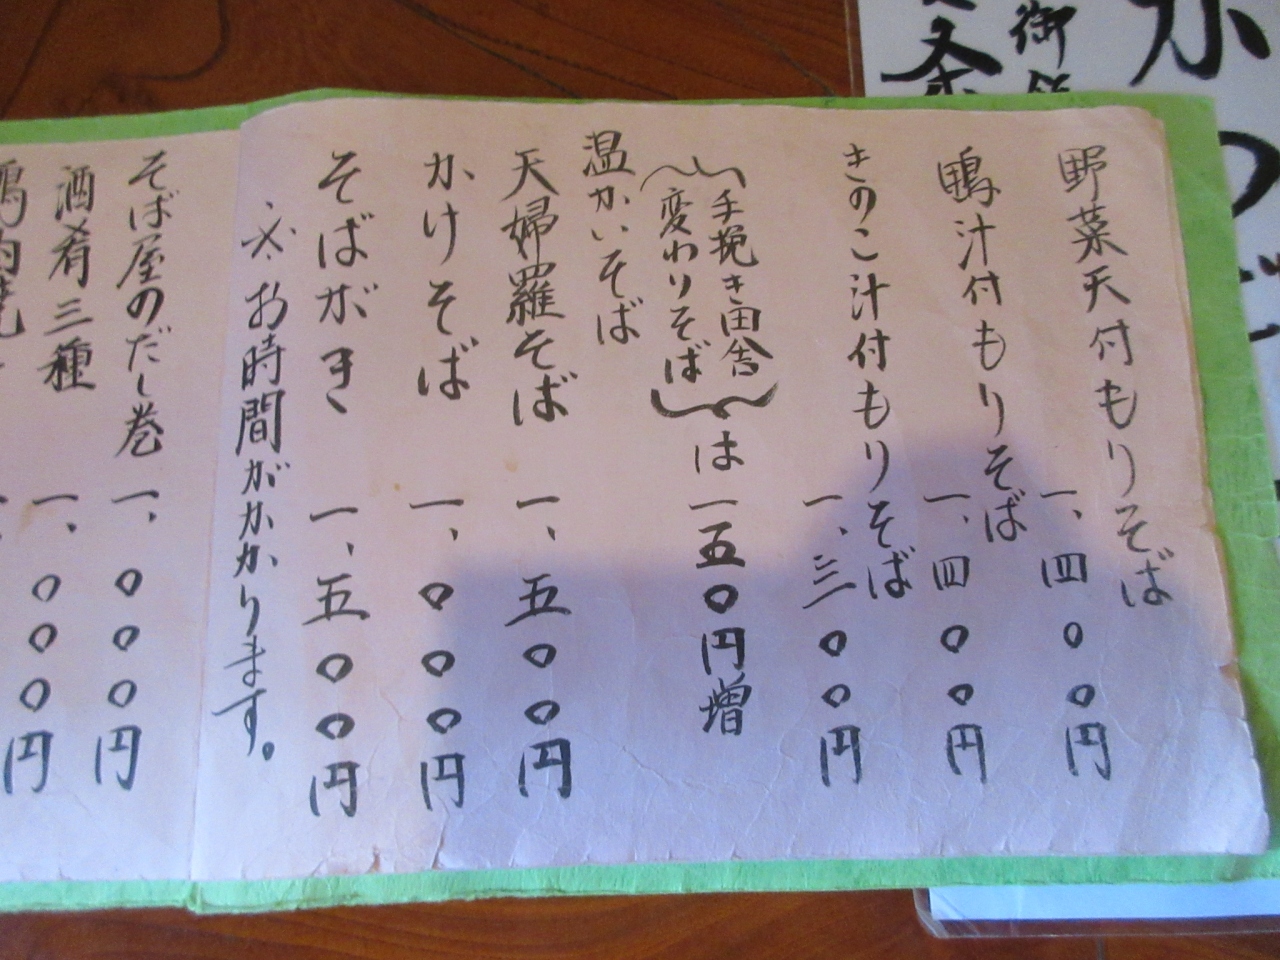 野菜天付もりそば 一、四〇〇円
鴨汁付もりそば 一、四〇〇円
きのこ汁付もりそば 一、三〇〇円
手挽き田舎
変わりそば
は一五〇円増
温かいそば
天婦羅そば 一、五〇〇円
かけそば 一、〇〇〇円
そばがき 一、五〇〇円
※お時間がかかります。
そば屋のだし巻 一、〇〇〇円
酒肴三種 一、〇〇〇円
御